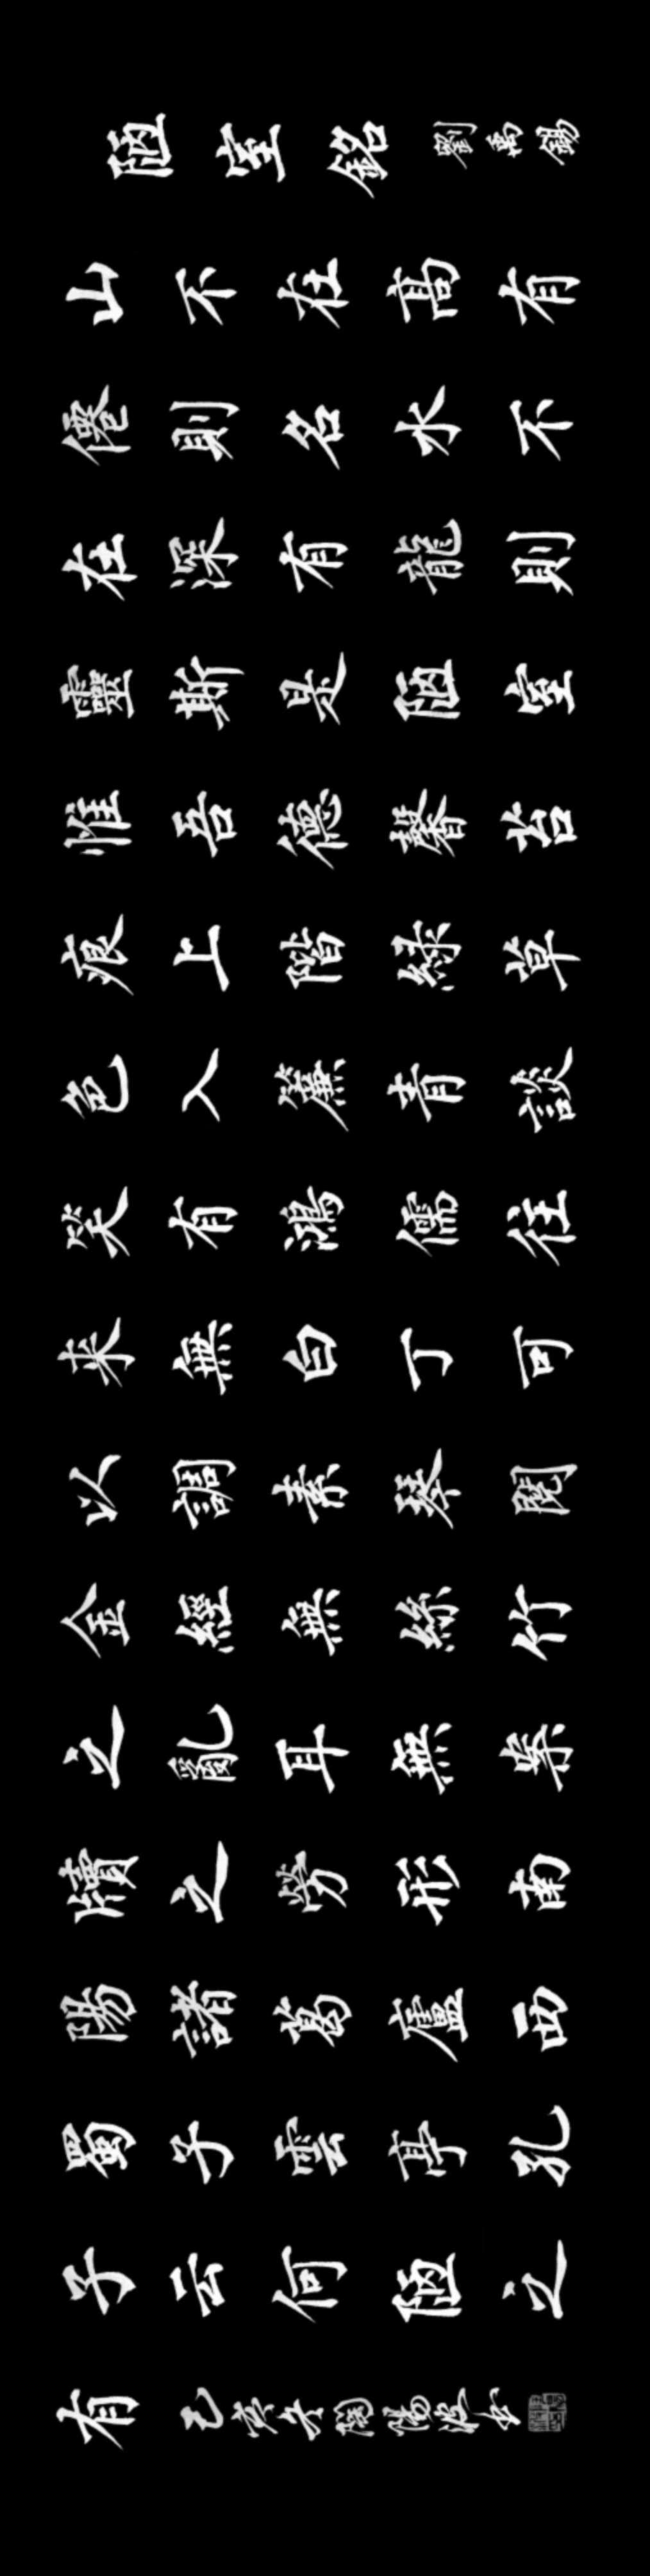 陋室銘 劉禹錫
山不在高有
僊則名水不
在深有龍則
靈斯是陋室
惟吾德馨苔
痕上階綠草
色入簾青談
笑有鴻儒往
來無白丁可
以調素琴閱
金經無絲竹
之亂耳無案
牘之勞形南
陽諸葛廬西
蜀子雲亭孔
子云何陋之
有 己亥年